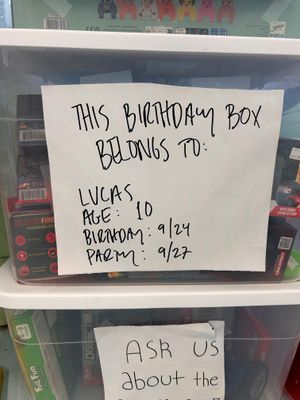 THIS BIRTHDAY BOX
BELONGS TO:
LUCAS
AGE: 10
BIRTHDAY: 9/24
PARTY: 9/27
FIRE
Foil Fun
ASK US
about the